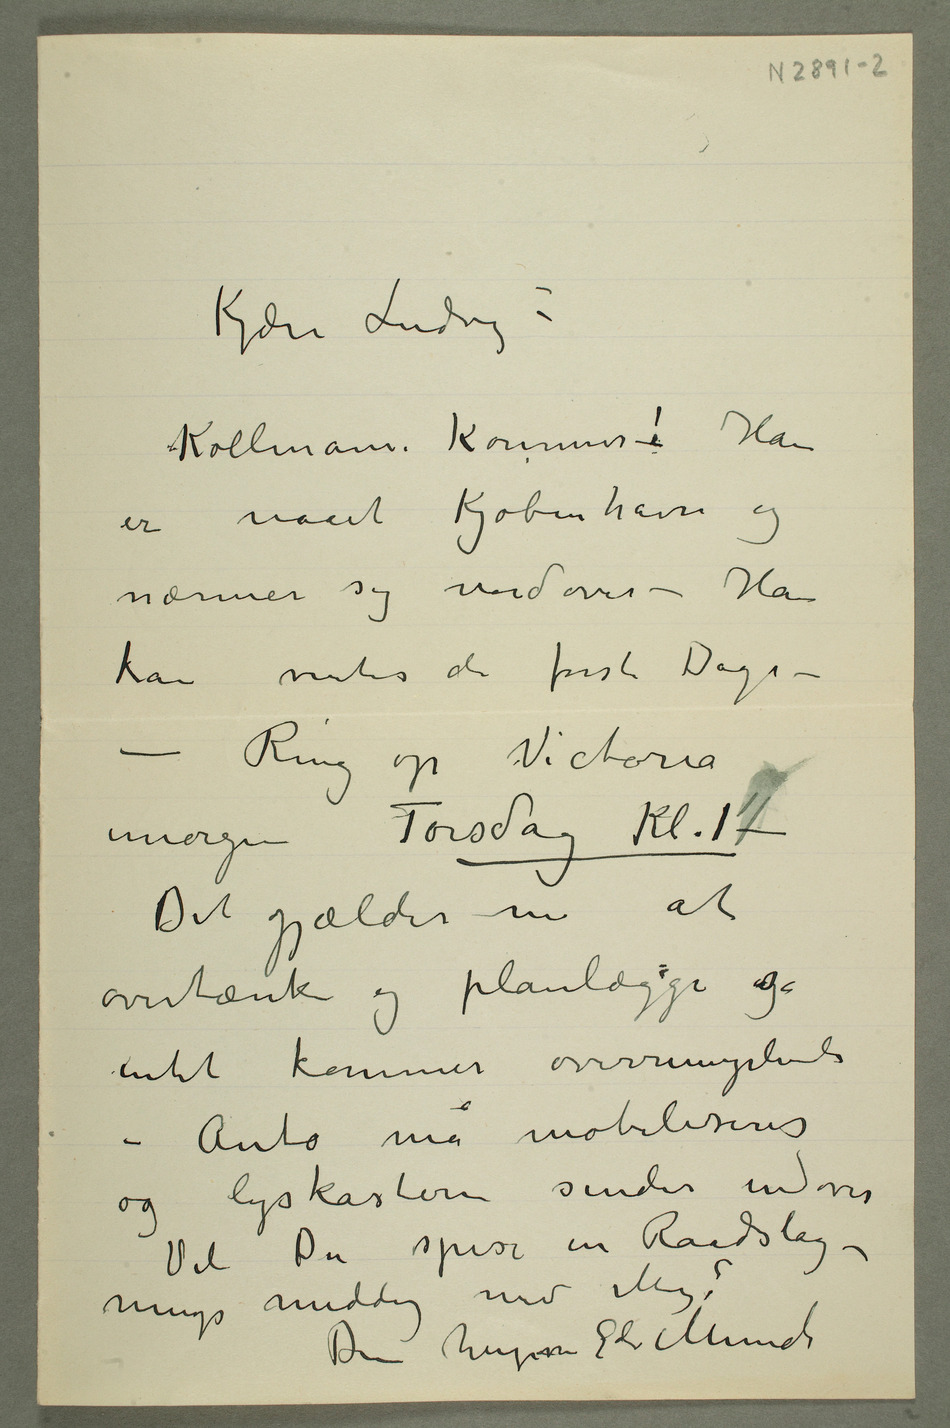 N 2891-2
Kjære Ludvig –
Kollmann kommer! Han
er naaet Kjøbenhavn og
nærmer sig nordover – Han
kan ventes de første Dage –
– Ring op Victoria
imorgen Torsdag Kl. 1
Det gjælder nu at
overtænke og planlægge så
intet kommer overrumplende
– Auto må mobiliseres
og lyskasterne sendes indover
Vil Du spise en Raadslag-
nings middag med Mig?
Din hengivne Edv Munch